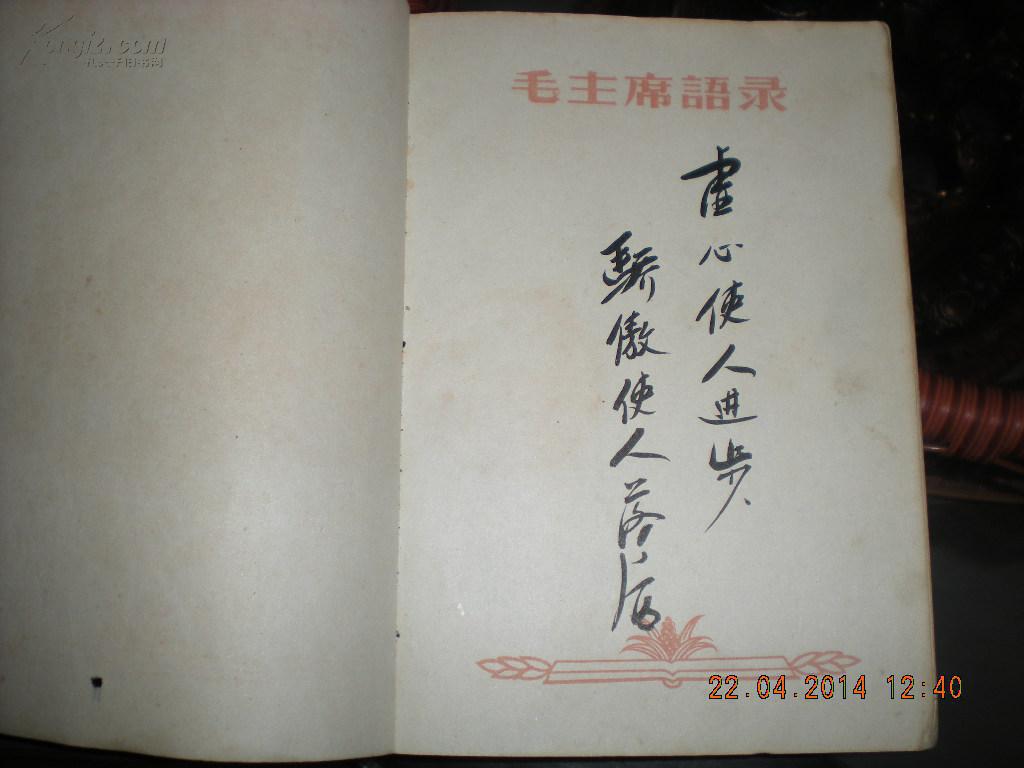 Kongfz.com
孔夫子旧书网
毛主席語录
虚心使人进步、
驕傲使人落后
22.04.2014 12:40